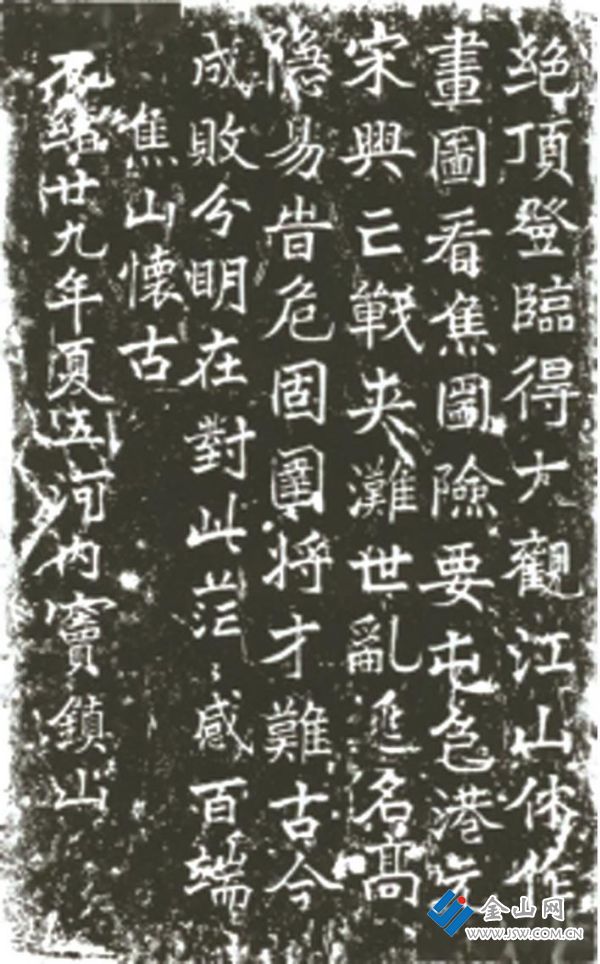 絶頂登臨得大觀江山休作
畫圖看焦圌險要屯包港
宋興亡戰夾灘世亂逃名高
隱易旹危固圉將才難古今
成敗分明在對此茫〻感百端
焦山懷古
光緒廿九年夏五河内竇鎮山
金山网
WWW.JSW.COM.CN